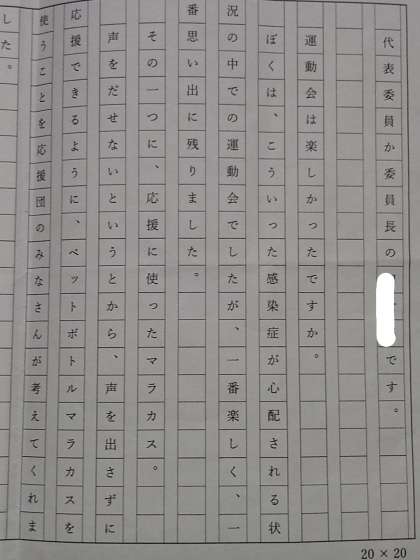 代表委員か委員長の
です。
運動会は楽しかったですか。
ぼくは、こういった感染症が心配される状
況の中での運動会でしたが、一番楽しく、一
番思い出に残りました。
その一つに、応援に使ったマラカス。
声をだせないというとから、声を出さずに
応援できるように、ペットボトルマラカスを
使うことを応援団のみなさんが考えてくれま
した。
20 × 20